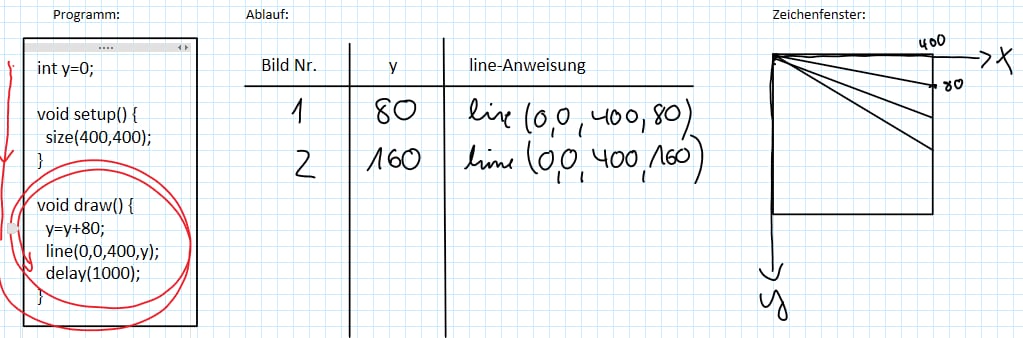 Programm:
int y=0;
void setup() {
size(400,400);
}
void draw() {
y=y+80;
line(0,0,400,y);
delay(1000);
}
Ablauf:
Bild Nr. y line-Anweisung
1 80 line (0,0,400,80)
2 160 line (0,0,400,160)
Zeichenfenster:
400
X
80
y